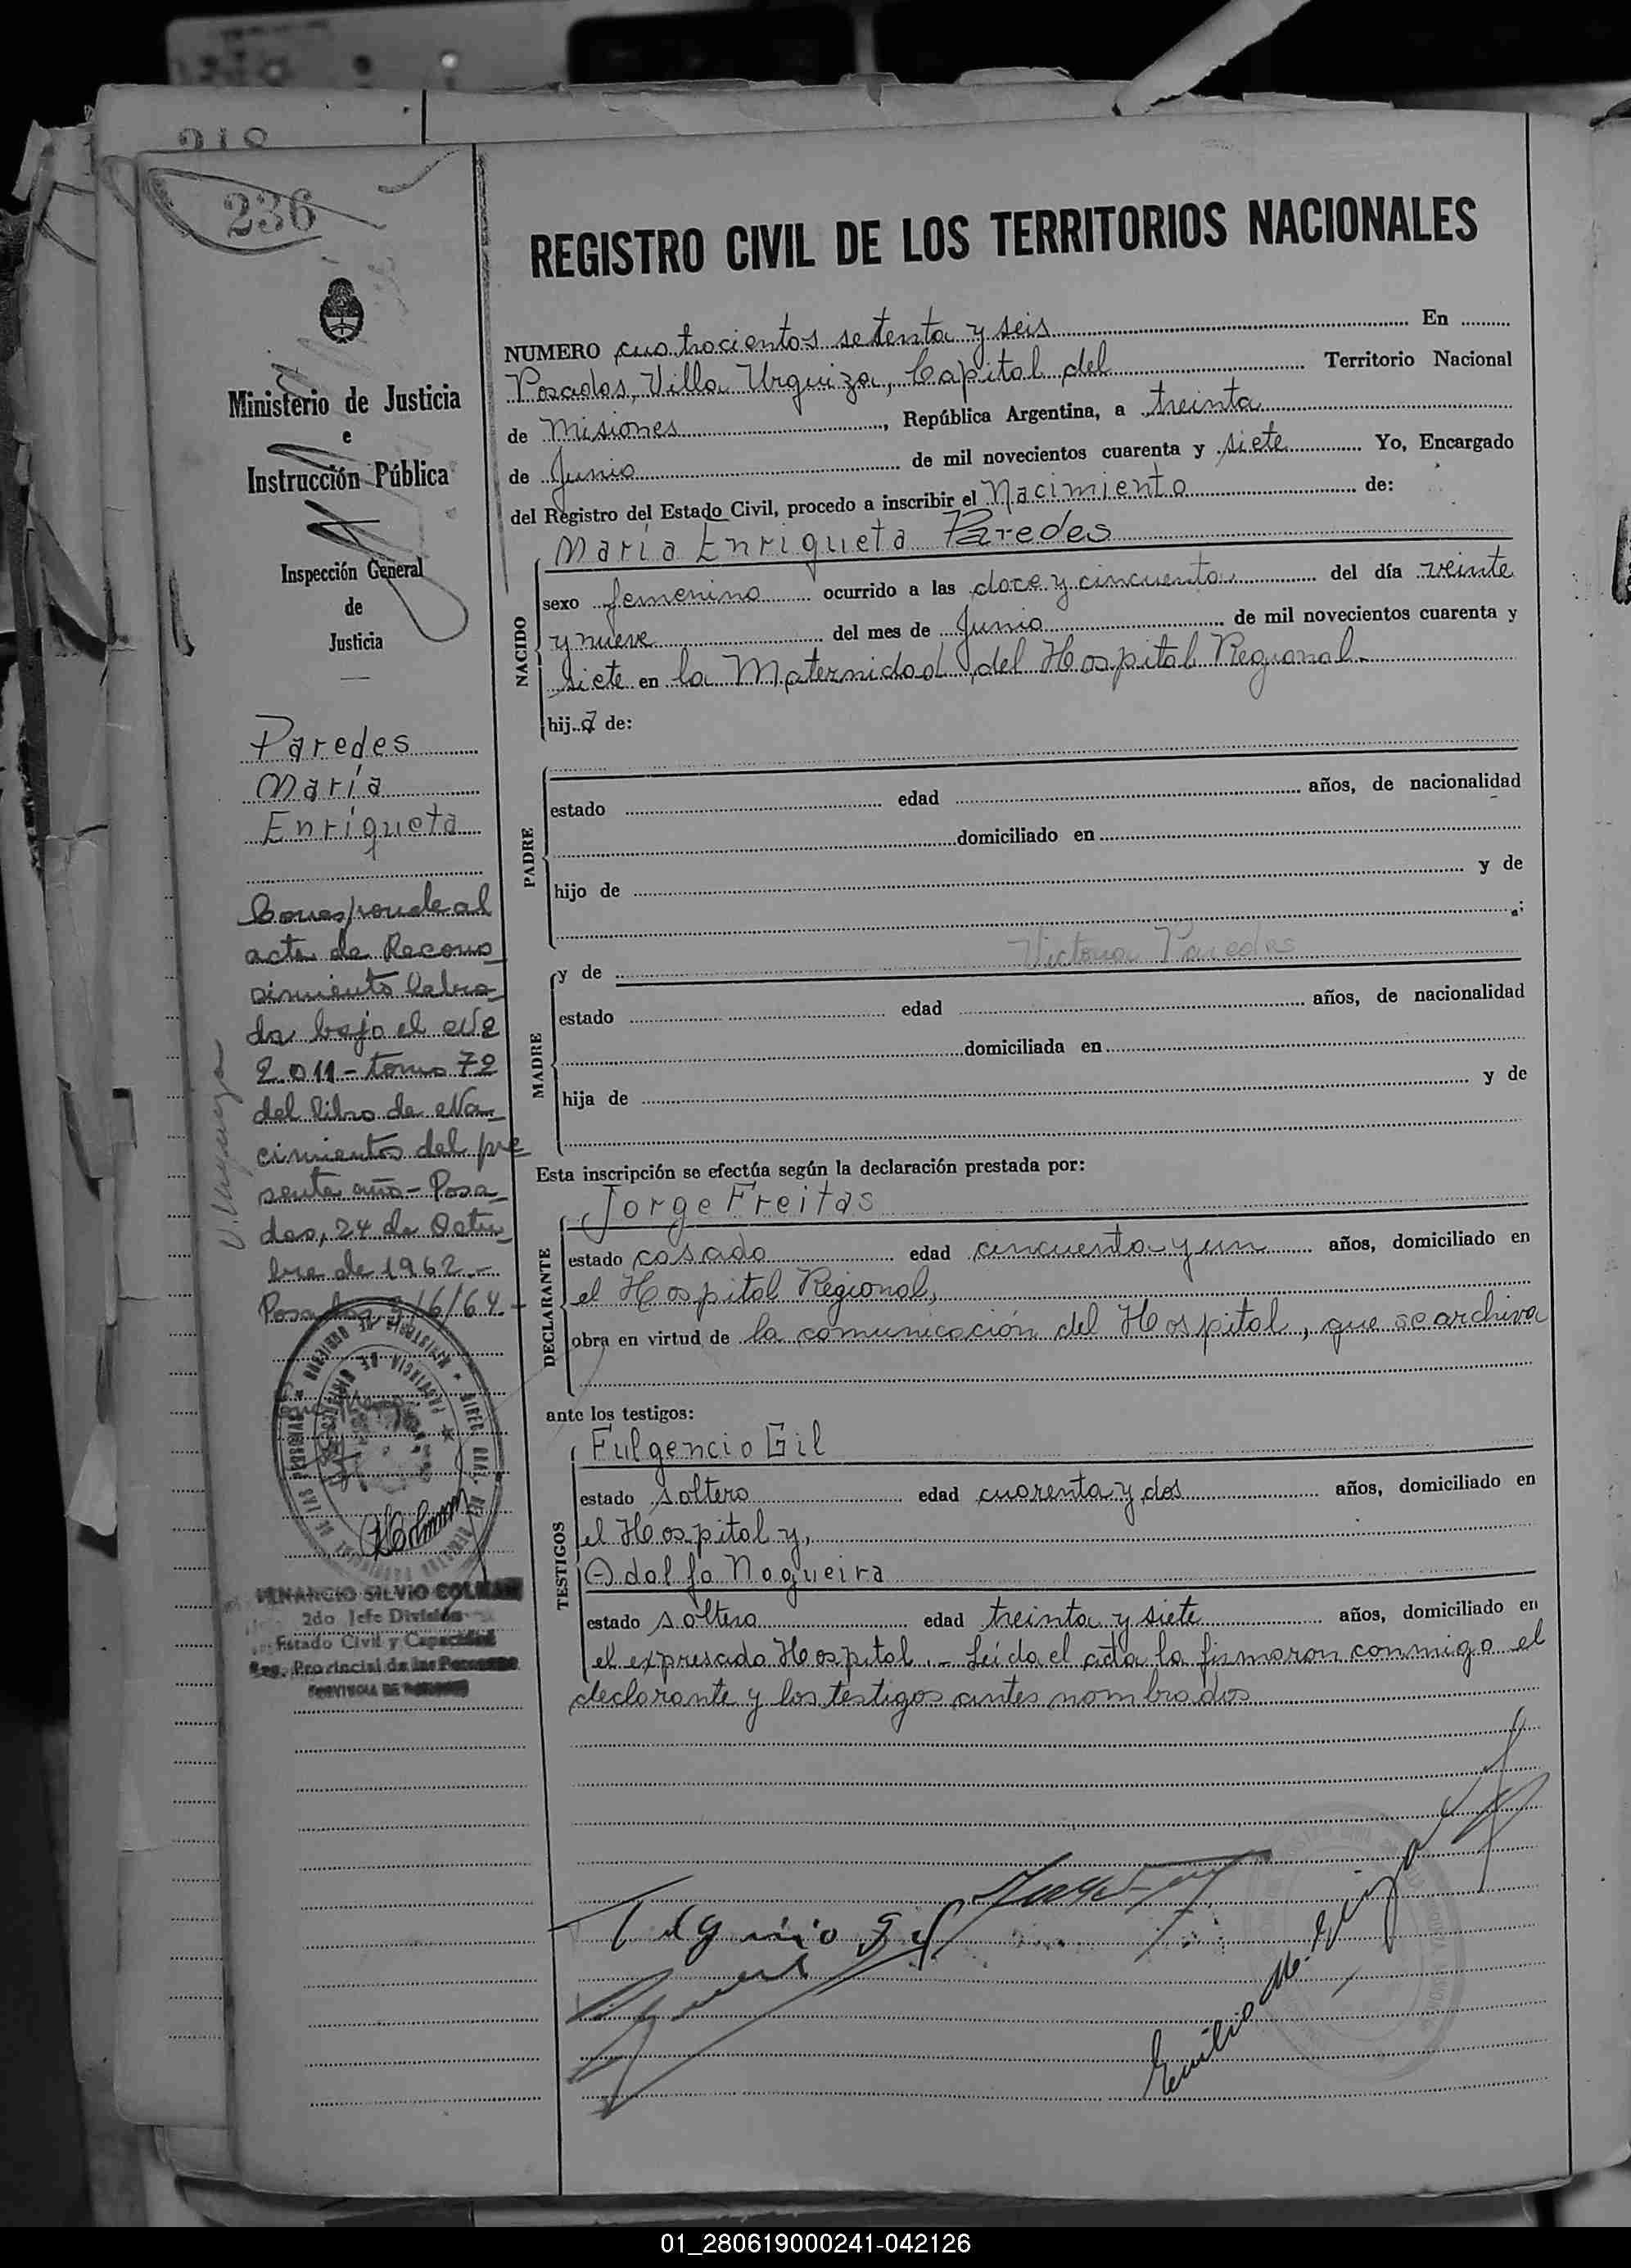 218
236
Ministerio de Justicia
e
Instrucción Pública
Inspección General
de
Justicia
Paredes
María
Enriqueta
Corresponde al
acta de Recono
cimiento labra
da bajo el Nº
2.011 - tomo 72
del libro de Na
cimientos del pre
sente año - Posa
das, 24 de Octu
bre de 1962.-
Posadas 3/6/64.-
VENANCIO SILVIO COLMAN
2do Jefe División
Estado Civil y Capacidad
Reg. Provincial de las Personas
PROVINCIA DE MISIONES
REGISTRO CIVIL DE LOS TERRITORIOS NACIONALES
NUMERO cuatrocientos setenta y seis En
Posadas, Villa Urquiza, Capital del Territorio Nacional
de Misiones, República Argentina, a treinta
de Junio de mil novecientos cuarenta y siete Yo, Encargado
del Registro del Estado Civil, procedo a inscribir el Nacimiento de:
María Enriqueta Paredes
NACIDO
sexo femenino ocurrido a las doce y cincuenta del día veinte
y nueve del mes de Junio de mil novecientos cuarenta y
siete en la Maternidad del Hospital Regional.
hij a de:
PADRE
estado edad años, de nacionalidad
domiciliado en
hijo de y de
;
y de Victoria Paredes
MADRE
estado edad años, de nacionalidad
domiciliada en
hija de y de
Esta inscripción se efectúa según la declaración prestada por:
Jorge Freitas
DECLARANTE
estado casado edad cincuenta y un años, domiciliado en
el Hospital Regional,
obra en virtud de la comunicación del Hospital, que se archiva
ante los testigos:
Fulgencio Gil
TESTIGOS
estado soltero edad cuarenta y dos años, domiciliado en
el Hospital y,
Adolfo Nogueira
estado soltero edad treinta y siete años, domiciliado en
el expresado Hospital.- Leída el acta la firmaron conmigo el
declarante y los testigos antes nombrados
01_280619000241-042126